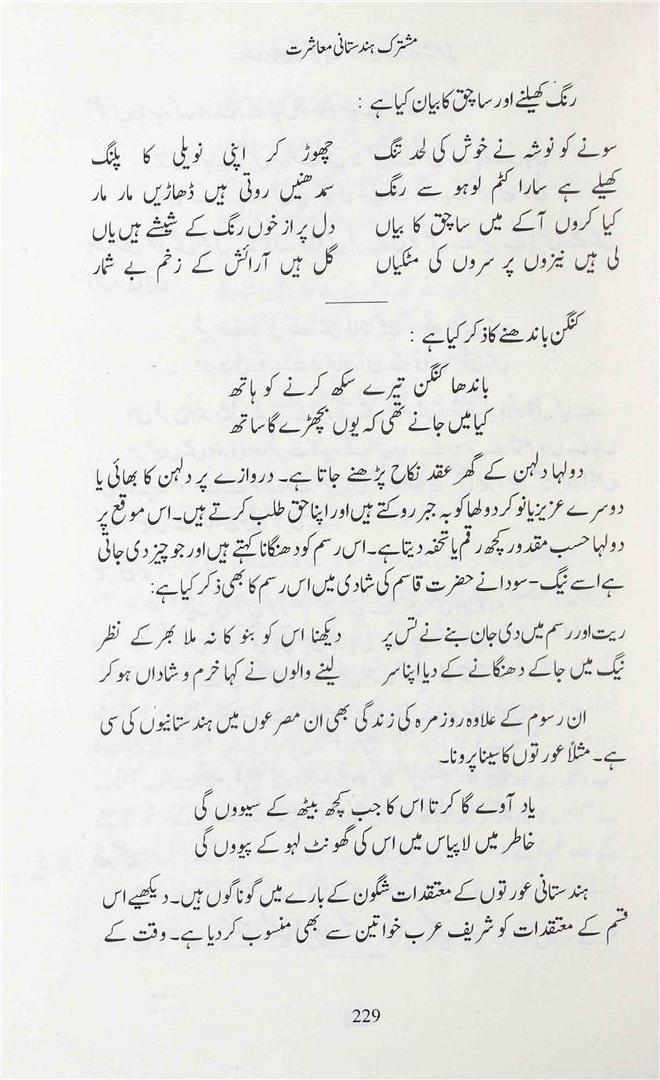 مشترک ہندستانی معاشرت
رنگ کھیلنے اور ساچق کا بیان کیا ہے :
سونے کو نوشہ نے خوش کی لحد تنگ چھوڑ کر اپنی نویلی کا پلنگ
کھیلے ہے سارا کٹم لوہو سے رنگ سمدھنیں روتی ہیں ڈھاڑیں مار مار
کیا کروں آ کے میں ساچق کا بیاں دل پر از خوں رنگ کے شیشے ہیں یاں
لی ہیں نیزوں پر سروں کی مٹکیاں گل ہیں آرائش کے زخم بے شمار
کنگن باندھنے کا ذکر کیا ہے :
باندھا کنگن تیرے سکھ کرنے کو ہاتھ
کیا میں جانے تھی کہ یوں بچھڑے گا ساتھ
دولہا دلہن کے گھر عقد نکاح پڑھنے جاتا ہے۔ دروازے پر دلہن کا بھائی یا
دوسرے عزیز یا نوکر دولھا کو بہ جبر روکتے ہیں اور اپنا حق طلب کرتے ہیں۔ اس موقع پر
دولہا حسب مقدور کچھ رقم یا تحفہ دیتا ہے۔ اس رسم کو دھنگانا کہتے ہیں اور جو چیز دی جاتی
ہے اسے نیگ-سودا نے حضرت قاسم کی شادی میں اس رسم کا بھی ذکر کیا ہے:
ریت اور رسم میں دی جان بنے نے تس پر دیکھنا اس کو بنو کا نہ ملا بھر کے نظر
نیگ میں جا کے دھنگانے کے دیا اپنا سر لینے والوں نے کہا خرم و شاداں ہو کر
ان رسوم کے علاوہ روزمرہ کی زندگی بھی ان مصرعوں میں ہندستانیوں کی سی
ہے۔ مثلاً عورتوں کا سینا پرونا۔
یاد آوے گا کرتا اس کا جب کچھ بیٹھ کے سیووں گی
خاطر میں لا پیاس میں اس کی گھونٹ لہو کے پیووں گی
ہندستانی عورتوں کے معتقدات شگون کے بارے میں گوناگوں ہیں۔ دیکھیے اس
قسم کے معتقدات کو شریف عرب خواتین سے بھی منسوب کر دیا ہے۔ وقت کے
229